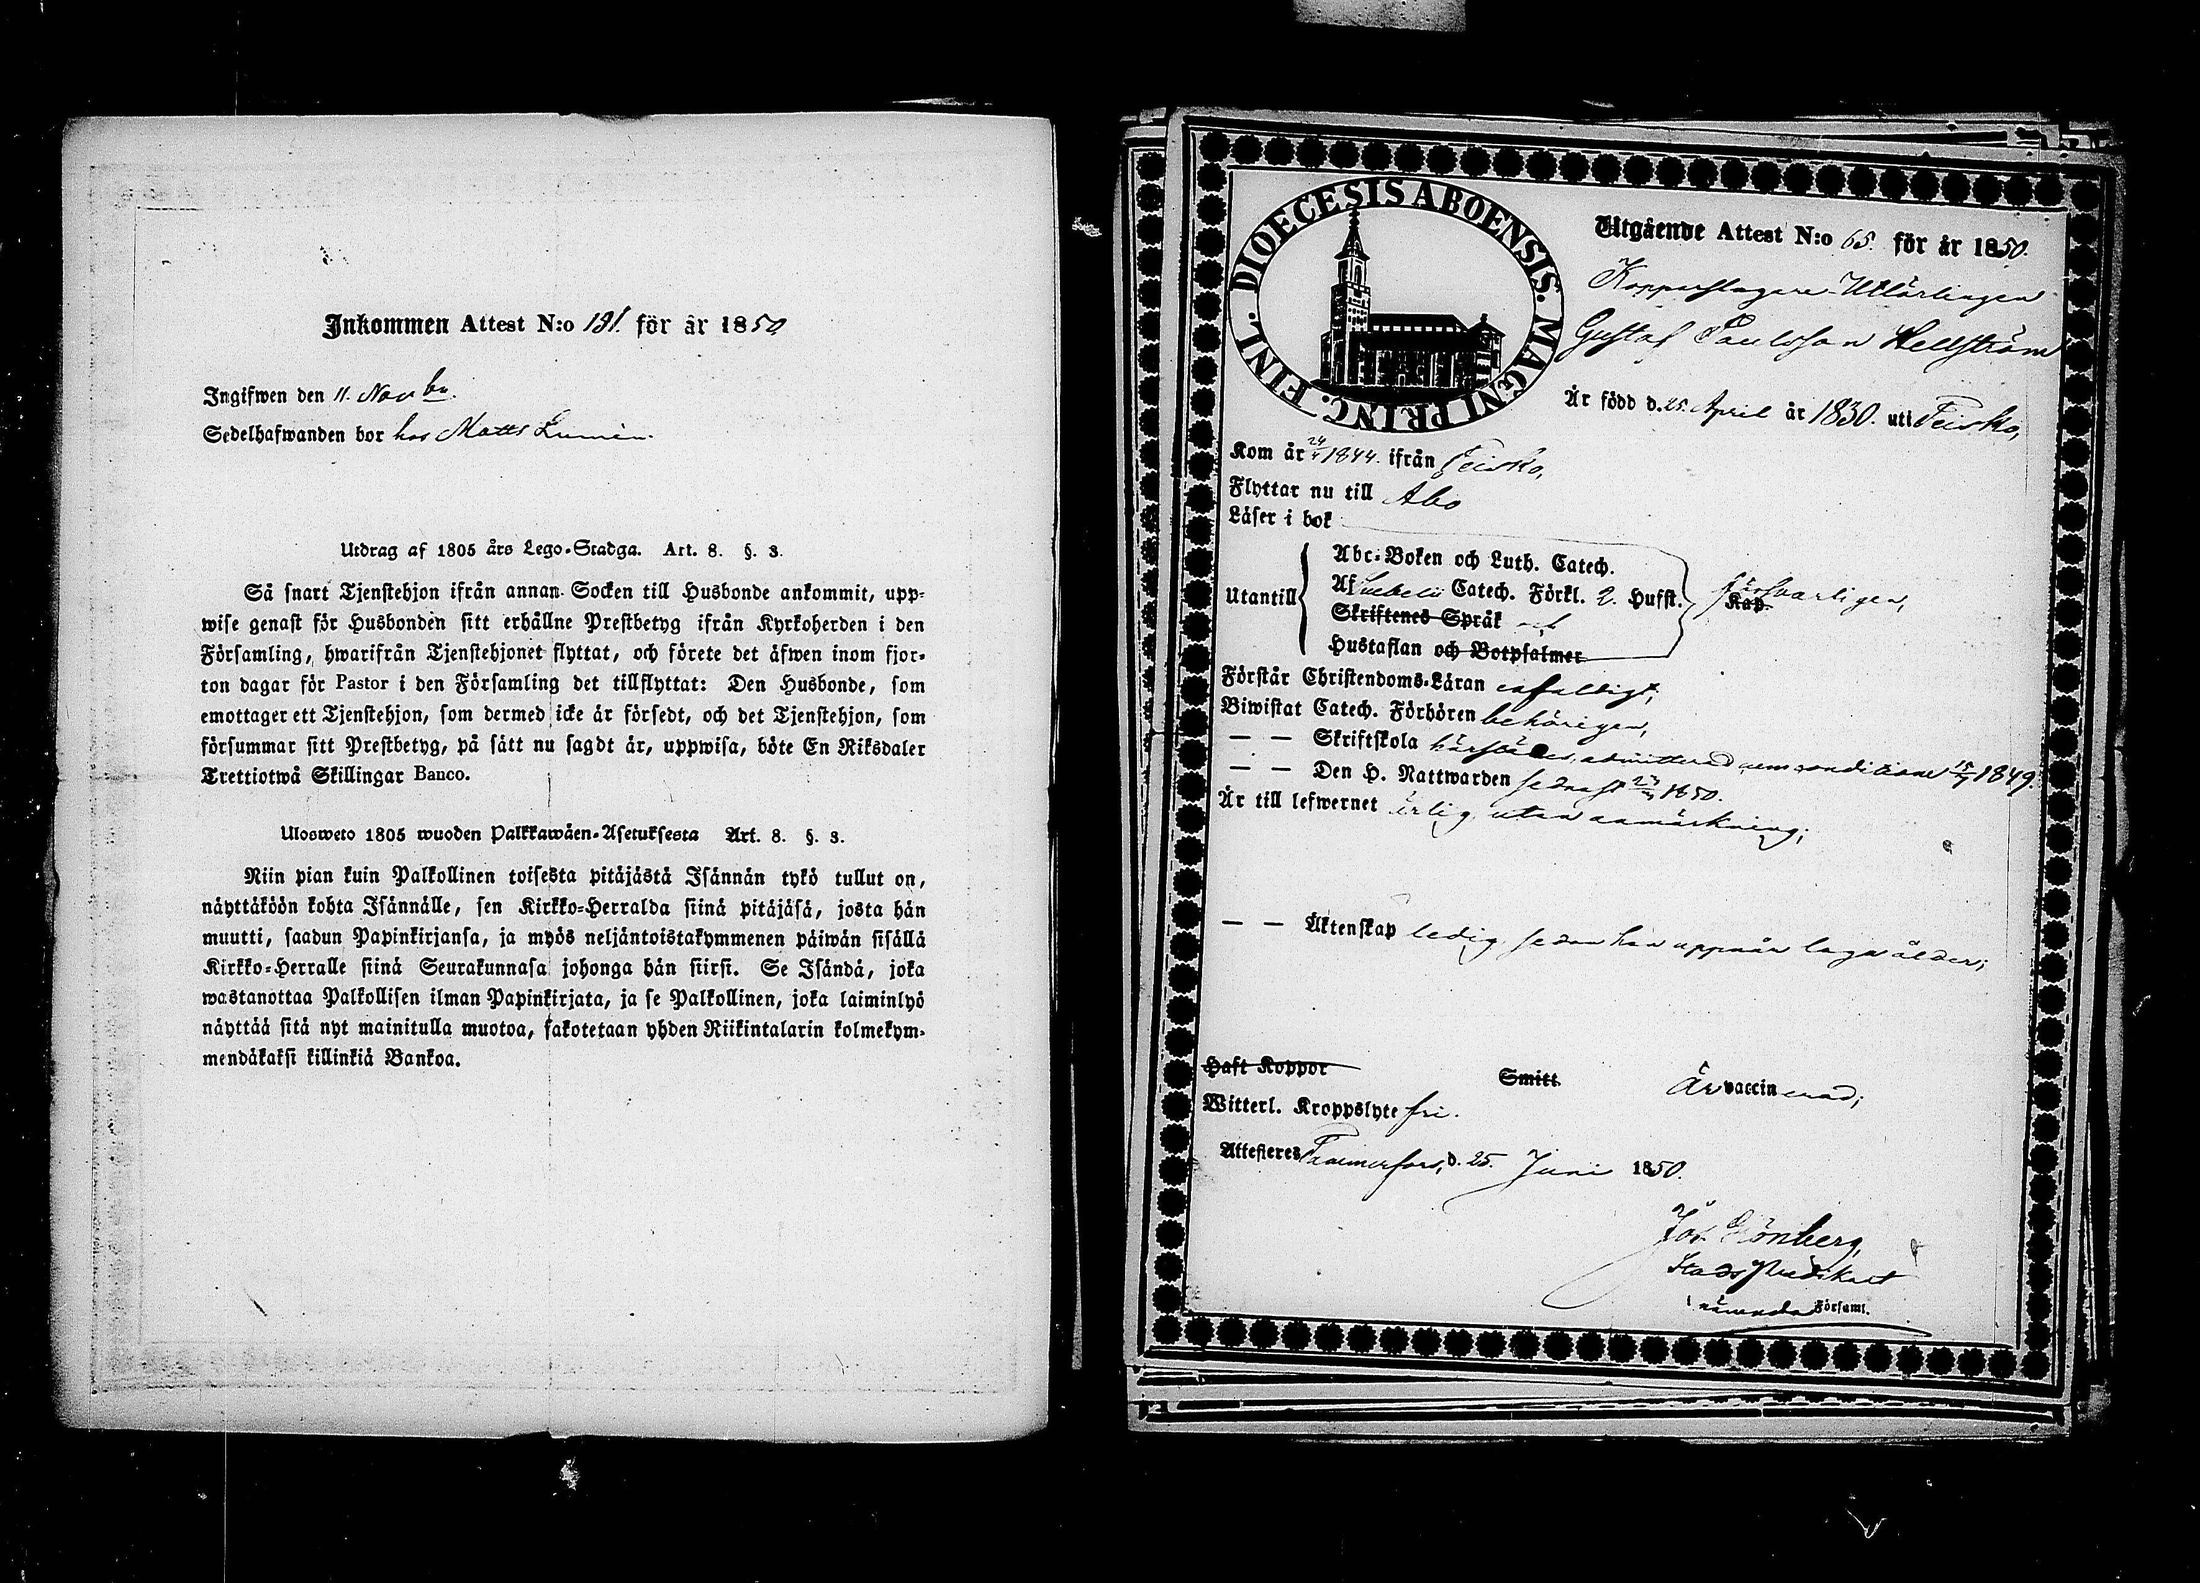 Inkommen Attest N:o 191. för år 1850
Ingifwen den 11. Novbr.
Sedelhafwanden bor hos Matts
Utdrag af 1805 års Lego-Stadga. Art. 8. §. 3.
Så snart Tjenstehjon ifrån annan Socken till Husbonde ankommit, upp-
wise genast för Husbonden sitt erhållne Prestbetyg ifrån Kyrkoherden i den
Församling, hwarifrån Tjenstehjonet flyttat, och förete det äfwen inom fjor-
ton dagar för Pastor i den Församling det tillflyttat: Den Husbonde, som
emottager ett Tjenstehjon, som dermed icke är försedt, och det Tjenstehjon, som
försummar sitt Prestbetyg, på sätt nu sagdt är, uppwisa, böte En Riksdaler
Trettiotwå Skillingar Banco.
Ulosweto 1805 wuoden Palkkawäen-Asetuksesta Art. 8. §. 3.
Niin pian kuin Palkollinen toisesta pitäjästä Isännän tykö tullut on,
näyttäköön kohta Isännälle, sen Kirkko-Herralda siinä pitäjäsä, josta hän
muutti, saadun Papinkirjansa, ja myös neljäntoistakymmenen päiwän sisällä
Kirkko-Herralle siinä Seurakunnasa johonga hän siirsi. Se Isändä, joka
wastanottaa Palkollisen ilman Papinkirjata, ja se Palkollinen, joka laiminlyö
näyttää sitä nyt mainitulla muotoa, sakotetaan yhden Riikintalarin kolmekym-
mendäkaksi killinkiä Bankoa.
DIOECESIS ABOENSIS. MAGNI PRINC. FINL.
Utgående Attest N:o 65. för år 1850.
Kopparslagare-Utlärlingen
Gustaf Paulsson Hellström
Är född d. 25. April år 1830. uti Teisko,
Kom år 24/ 1844. ifrån Teisko,
Flyttar nu till Abo
Läser i bok
Abc-Boken och Luth. Catech.
Utantill Af Svebelii Catech. Förkl. 2. Hufst. försvarligen, Kap.
Skriftenes Språk och
Hustaflan och Botpsalmer
Förstår Christendoms-Läran enfaldigt;
Biwistat Catech. Förhören behörigen,
— — Skriftskola härstädes, admitterad cum conditione 15/ 1849.
— — Den H. Nattwarden sednast 1850.
Är till lefwernet ärlig utan anmärkning;
— — Äktenskap ledig, sedan han uppnår laga ålder;
Haft Koppor Smitt. Är vaccinerad;
Witterl. Kroppslyte fri.
Attesteres Tammerfors, d. 25. Juni 1850.
Jos. Grönberg,
Stads Predikant
i nämnda Församl.